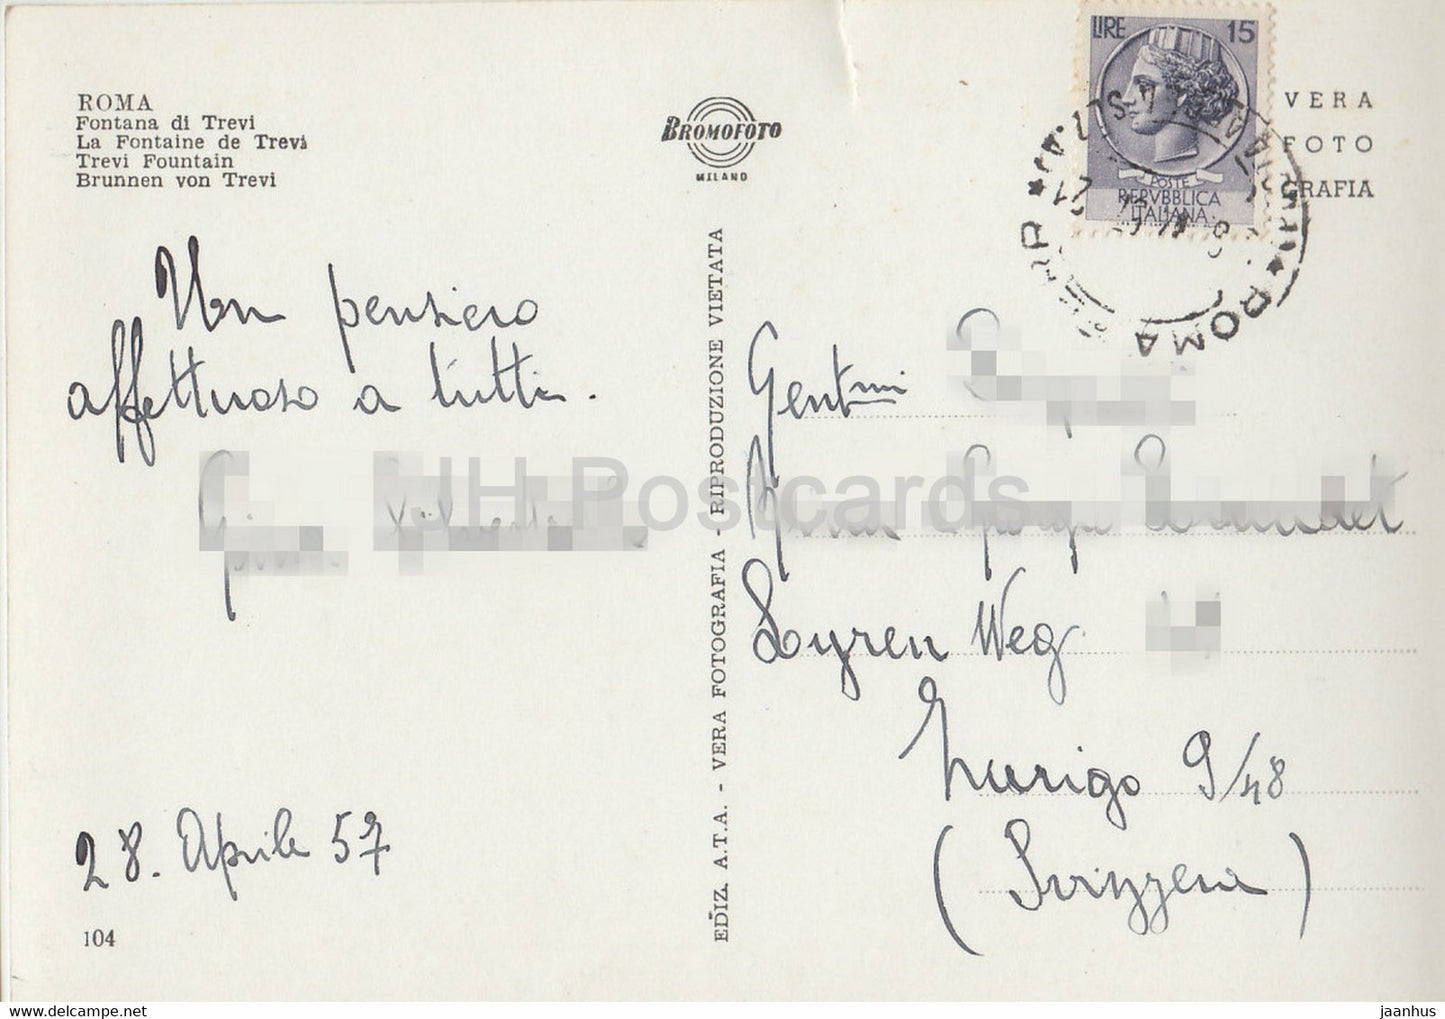 ROMA
Fontana di Trevi
La Fontaine de Trevi
Trevi Fountain
Brunnen von Trevi
BROMOFOTO
MILANO
LIRE 15
POSTE
REPVBBLICA
ITALIANA
ROMA
VERA
FOTO
GRAFIA
Un pensiero
affettuoso a tutti.
28. Aprile 57
104
EDIZ. A.T.A. - VERA FOTOGRAFIA - RIPRODUZIONE VIETATA
Gentmi
Lyren Weg
Zurigo 9/48
(Svizzera)
JH Postcards
www.delcampe.net
jaanhus